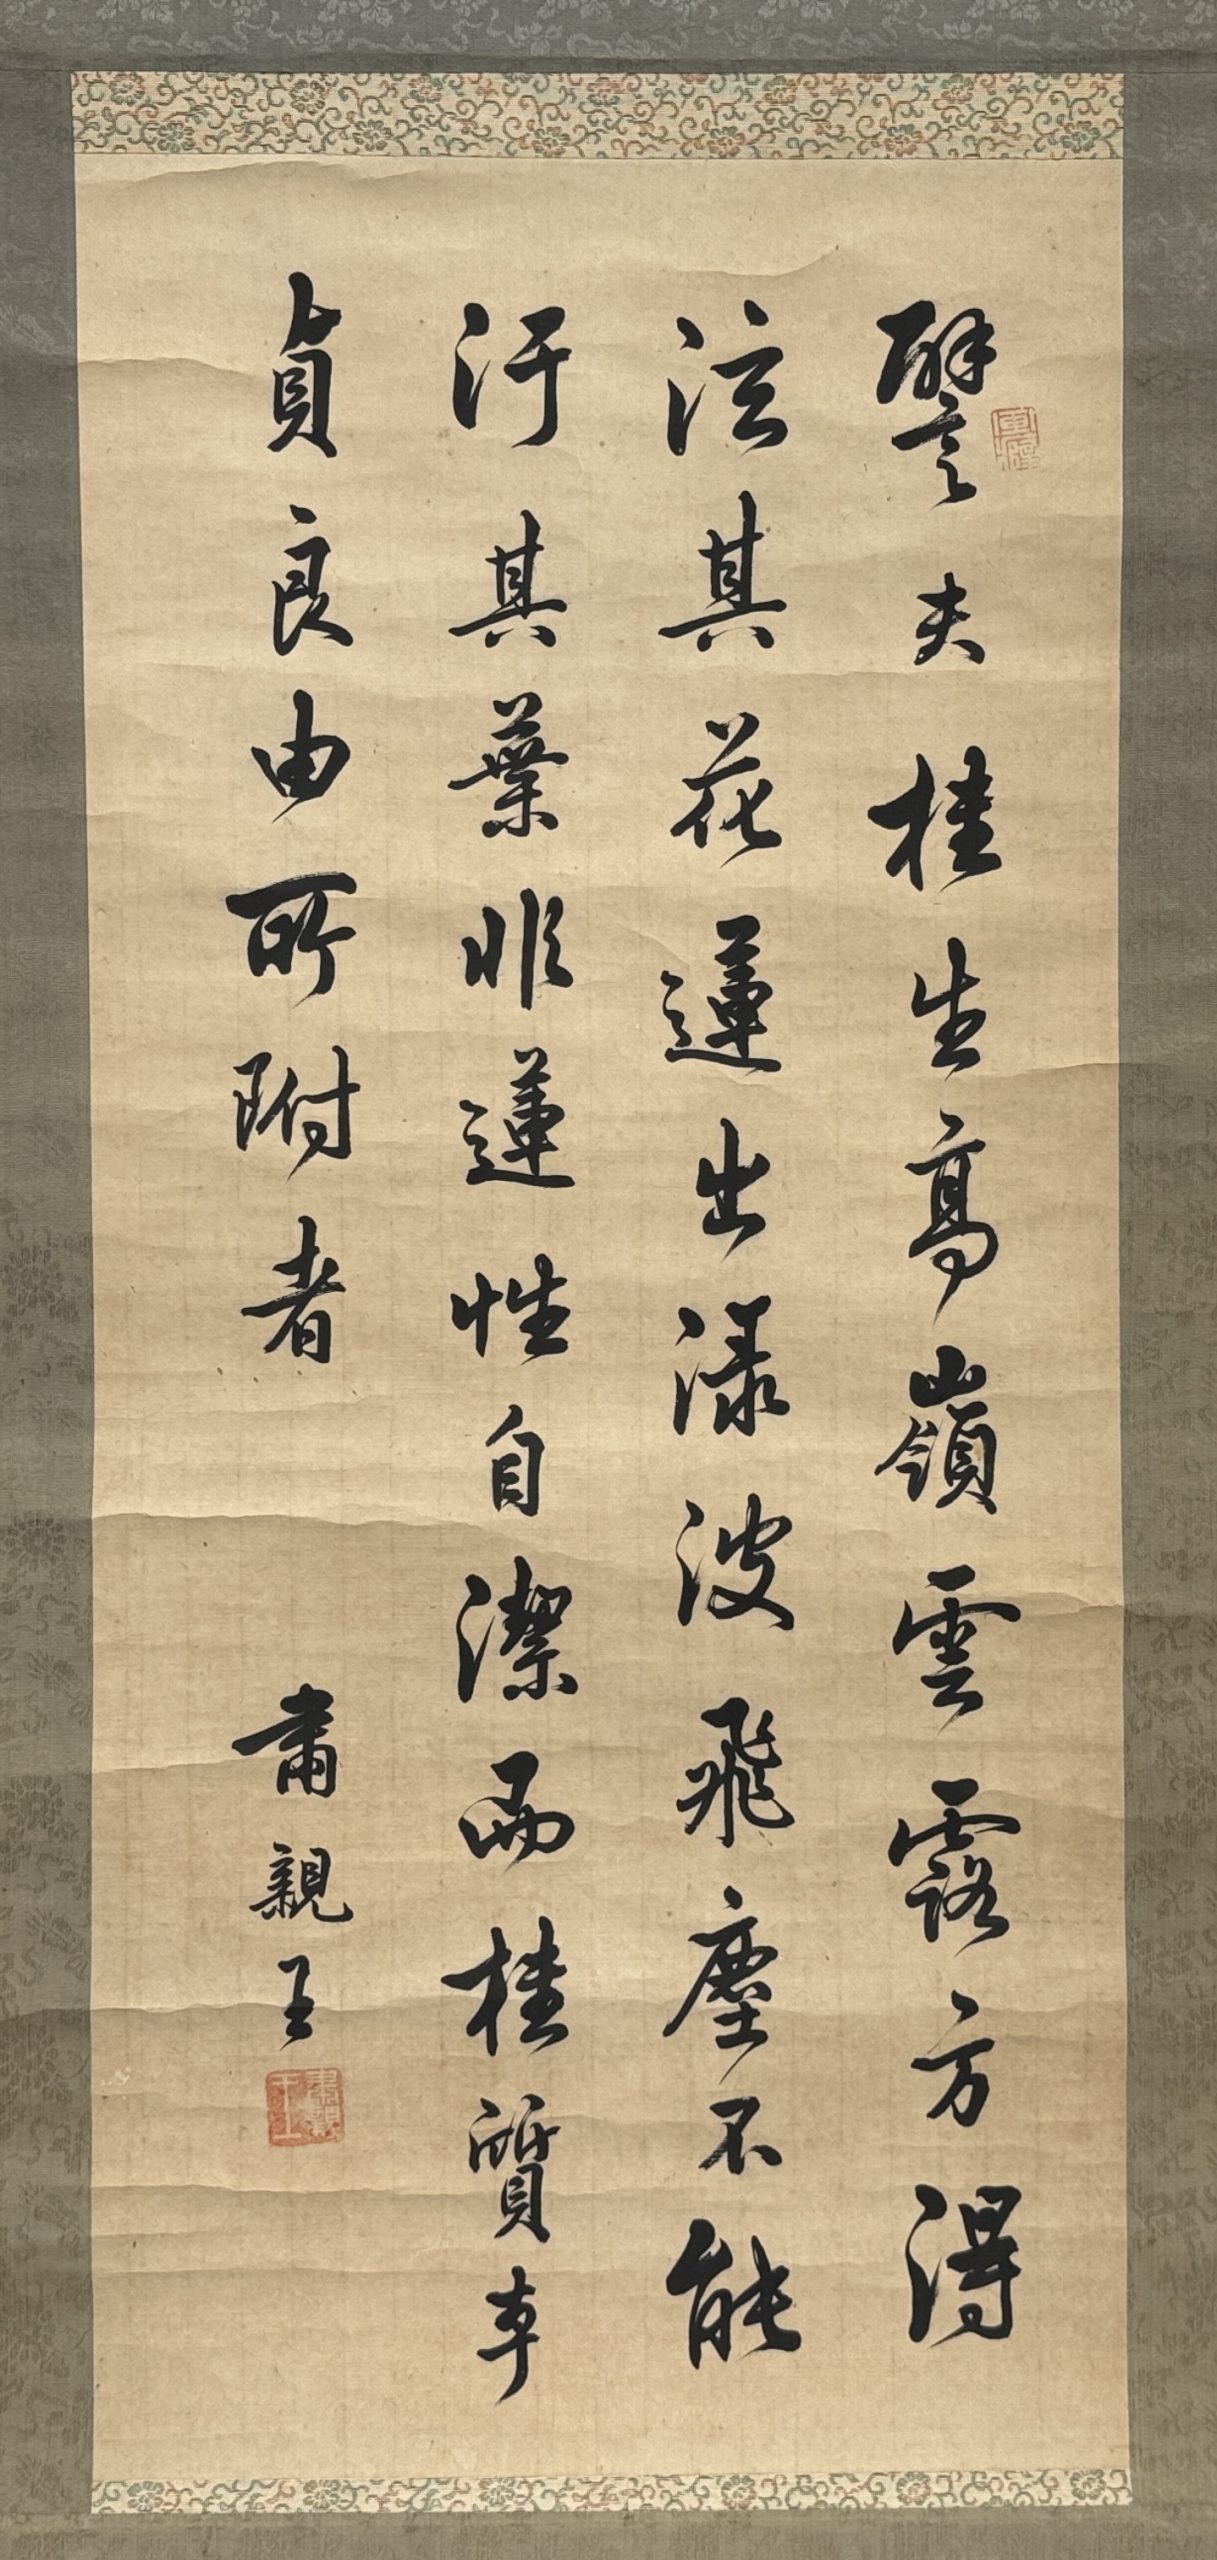 譬夫桂生高嶺雲露方得
泫其花蓮出渌波飛塵不能
汙其葉非蓮性自潔而桂質本
貞良由所附者
肅親王
肅親王